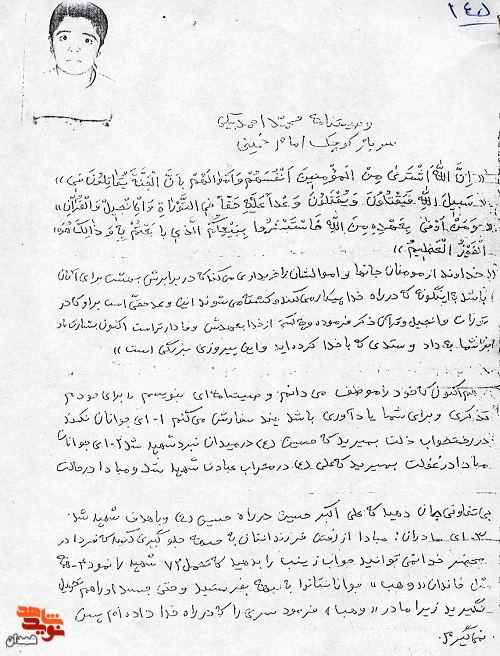 ۱۴۵
وصیتنامه محمد احمد بیگی
سرباز کوچک امام خمینی
«اِنَّ اللّهَ اَشْتَریٰ مِنَ المُؤمِنینَ اَنْفُسَهُمْ وَاَمْوالَهُمْ بِاَنَّ الْجَنَّةَ یُقاتِلُونَ فی»
«سَبیلِ اللّهِ فَیَقْتُلُونَ وَیُقْتَلُونَ وَعْداً عَلَیْهِ حَقّاً فِی التَّوْراةِ وَالاِنجیلِ وَالْقُرآنِ»
«وَمَنْ اَوْفیٰ بِعَهْدِهِ مِنَ اللّهِ فَاسْتَبْشِرُوا بِبَیْعِکُمُ الَّذی بایَعْتُمْ بِهِ وَ ذالِکَ هُوَ»
الْفَوْزُ الْعَظیمُ»
«خداوند از مومنان جانها و اموالشان را خریداری می‌کند که در برابرش بهشت برای آنان
باشد به اینگونه که در راه خدا پیکار می‌کنند و کشته می‌شوند این وعده حقی است بر او که در
تورات و انجیل و قرآن ذکر فرموده و چه کسی از خدا به عهدش وفادارتر است اکنون بشارت باد
به داد و ستدی که با خدا کرده‌اید و این پیروزی بزرگی است»
هم اکنون که خود را موظف می دانم وصیتنامه‌ای بنویسم را برای خودم
تذکری و برای شما یادآوری باشد چند سفارش می‌کنم ۱- ای جوانان نکند
در رختخواب ذلت بمیرید که حسین (ع) در میدان نبرد شهید شد ۲- ای جوانان
مبادا در غفلت بمیرید که علی (ع) در محراب عبادت شهید شد و مبادا در حالت
بی تفاوتی جان دهید که علی اکبر حسین در راه حسین (ع) و با هدف شهید شد
۳- ای مادران: مبادا از رفتن فرزندانتان به جبهه جلوگیری کنید که فردا در
محضر خدا نمی توانید جواب زینب را بدهید که تحمل ۷۲ شهید را نمود ۴- همه
مثل خاندان «وهب» جوانانتان را به جبهه بفرستید و حتی جسد او را هم تحویل
نگیرید زیرا مادر «وهب» فرمود سری را که در راه خدا داده‌ام پس
نمی‌گیرم.
نوید شاهد
همدان